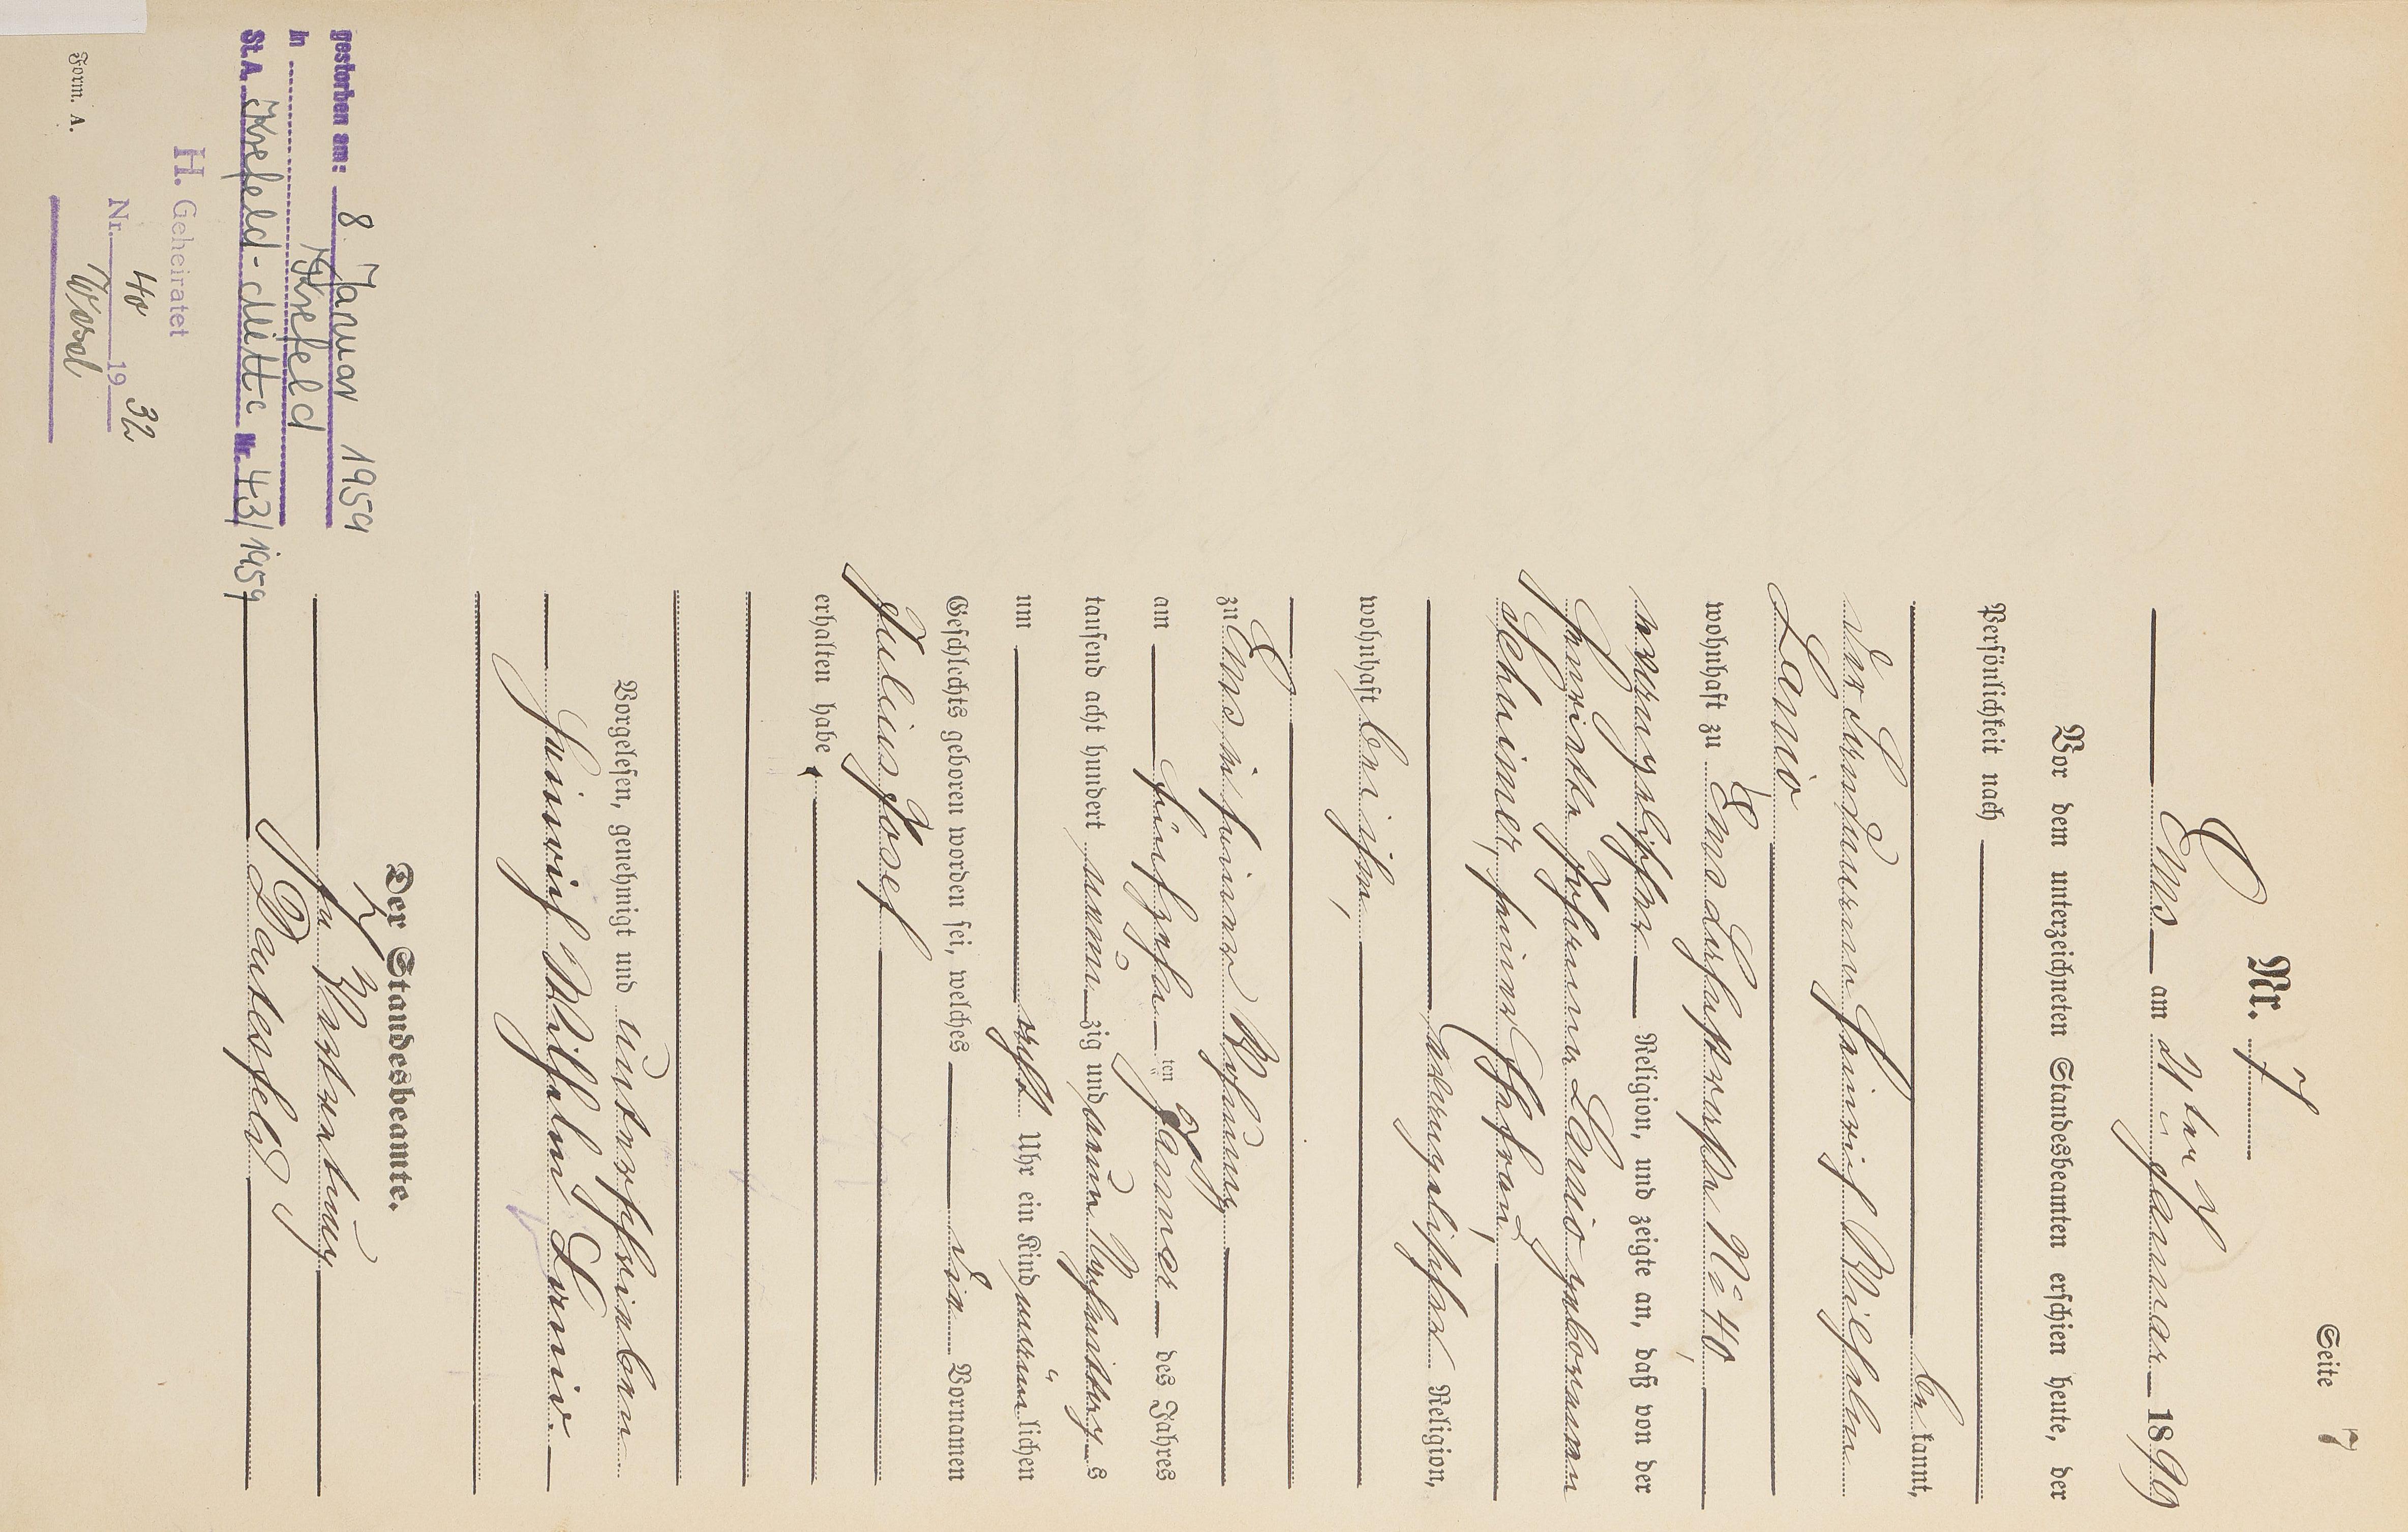 Seite 7
Nr. 7
Ems am 21ten Januar 1899
Vor dem unterzeichneten Standesbeamten erschien heute, der
Persönlichkeit nach
bekannt,
der Heinrich Wilhelm
Lanio
wohnhaft zu Ems Lahnstraße No 40,
evangelischer Religion, und zeigte an, daß von der
Henriette Johanna Lanio geborenen
Schuimer, seiner Ehefrau,
evangelischer Religion,
wohnhaft bei ihm,
zu Ems in seiner Wohnung
am fünfzehnten Januar des Jahres
tausend acht hundert neunzig und neun Nachmittags
um acht Uhr ein Kind männlichen
Geschlechts geboren worden sei, welches die Vornamen
Julius Josef
erhalten habe.
Vorgelesen, genehmigt und unterschrieben
Heinrich Wilhelm Lanio.
Der Standesbeamte.
In Vertretung
Deutesfeld
gestorben am: 8. Januar 1959
in Krefeld
St.A. Krefeld-Mitte Nr. 43/1959
H. Geheiratet
Nr. 40 1932
Form. A.